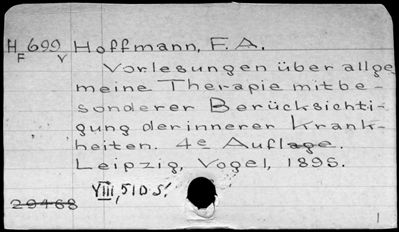 H 699 Hoffmann, F. A.
F V
Vorlesungen über allge
meine Therapie mit be-
sonderer Berücksichti-
gung der innerer Krank-
heiten. 4e Auflage.
Leipzig, Vogel, 1895.
VIII, 510 S.
29468
1